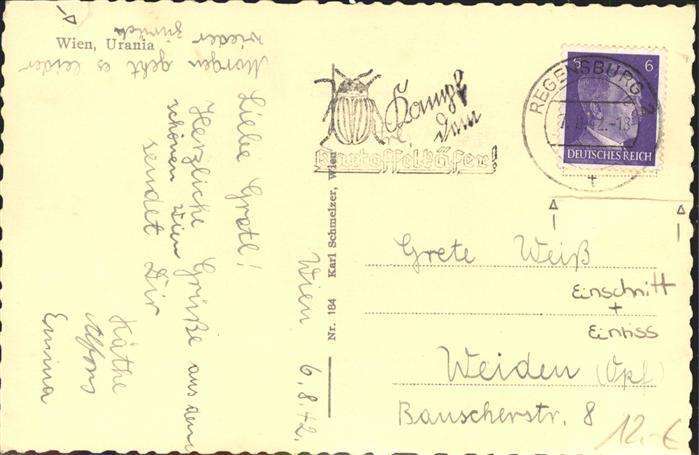 Wien, Urania
Wien 6.8.42.
Liebe Gretl!
Herzliche Grüße aus dem
schönen Wien
sendet Dir
Käthe
Alfons
Emma
Morgen geht es leider
wieder
zurück
Nr. 184 Karl Schmelzer, Wien
Kampf
dem
Kartoffelkäfer!
REGENSBURG 2
6
DEUTSCHES REICH
Grete Weiß
Einschnitt
+
Einriss
Weiden (Opf)
Bauscherstr. 8
12.-€